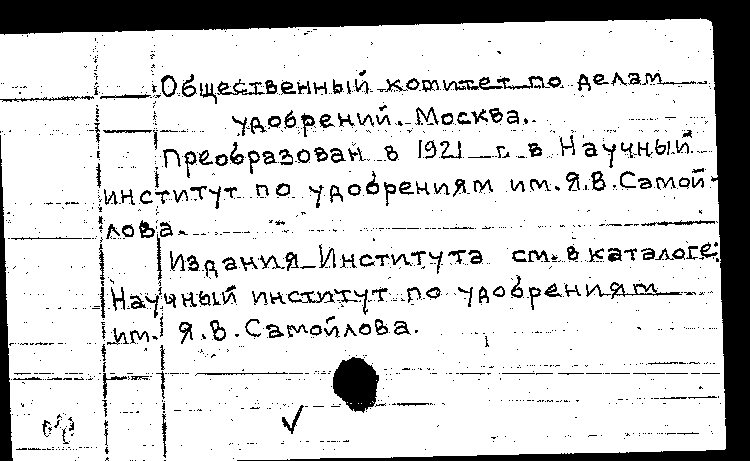 Общественный комитет по делам
удобрений. Москва.
Преобразован в 1921 г. в Научный
институт по удобрениям им. Я.В.Самой-
лова.
Издания Института см. в каталоге:
Научный институт по удобрениям
им. Я.В.Самойлова.